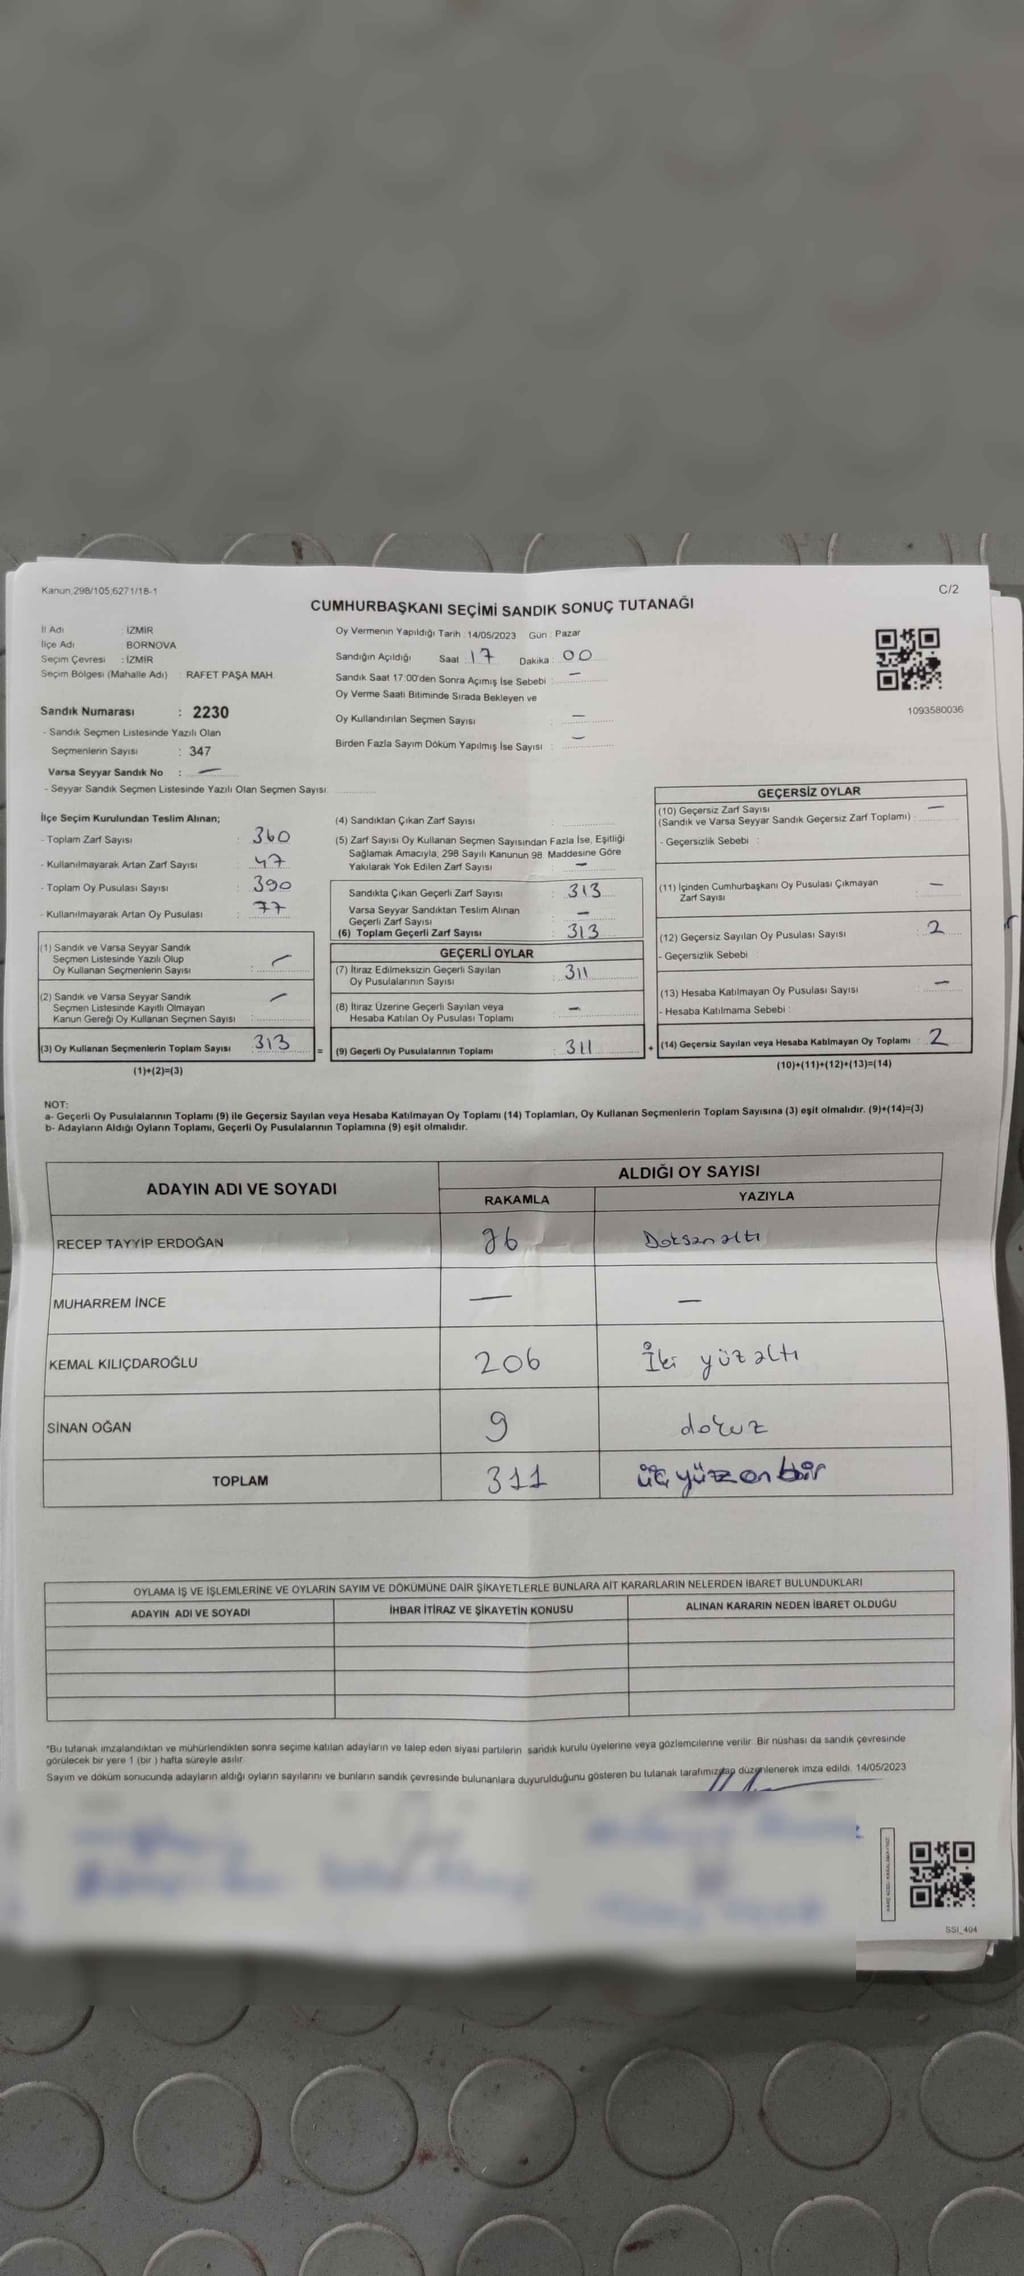 Kanun,298/105,6271/18-1
C/2
CUMHURBAŞKANI SEÇİMİ SANDIK SONUÇ TUTANAĞI
İl Adı : İZMİR
İlçe Adı : BORNOVA
Seçim Çevresi : İZMİR
Seçim Bölgesi (Mahalle Adı) : RAFET PAŞA MAH.
Sandık Numarası : 2230
- Sandık Seçmen Listesinde Yazılı Olan
Seçmenlerin Sayısı : 347
Varsa Seyyar Sandık No : —
- Seyyar Sandık Seçmen Listesinde Yazılı Olan Seçmen Sayısı
Oy Vermenin Yapıldığı Tarih : 14/05/2023 Gün : Pazar
Sandığın Açıldığı Saat : 17 Dakika : 00
Sandık Saat 17:00'den Sonra Açımış İse Sebebi : —
Oy Verme Saati Bitiminde Sırada Bekleyen ve
Oy Kullandırılan Seçmen Sayısı : —
Birden Fazla Sayım Döküm Yapılmış İse Sayısı : —
1093580036
İlçe Seçim Kurulundan Teslim Alınan;
- Toplam Zarf Sayısı : 360
- Kullanılmayarak Artan Zarf Sayısı : 47
- Toplam Oy Pusulası Sayısı : 390
- Kullanılmayarak Artan Oy Pusulası : 77
(1) Sandık ve Varsa Seyyar Sandık
Seçmen Listesinde Yazılı Olup
Oy Kullanan Seçmenlerin Sayısı : —
(2) Sandık ve Varsa Seyyar Sandık
Seçmen Listesinde Kayıtlı Olmayan
Kanun Gereği Oy Kullanan Seçmen Sayısı : —
(3) Oy Kullanan Seçmenlerin Toplam Sayısı : 313
(1)+(2)=(3)
(4) Sandıktan Çıkan Zarf Sayısı :
(5) Zarf Sayısı Oy Kullanan Seçmen Sayısından Fazla İse, Eşitliği
Sağlamak Amacıyla, 298 Sayılı Kanunun 98. Maddesine Göre
Yakılarak Yok Edilen Zarf Sayısı : —
Sandıkta Çıkan Geçerli Zarf Sayısı : 313
Varsa Seyyar Sandıktan Teslim Alınan
Geçerli Zarf Sayısı : —
(6) Toplam Geçerli Zarf Sayısı : 313
GEÇERLİ OYLAR
(7) İtiraz Edilmeksizin Geçerli Sayılan
Oy Pusulalarının Sayısı : 311
(8) İtiraz Üzerine Geçerli Sayılan veya
Hesaba Katılan Oy Pusulası Toplamı : —
= (9) Geçerli Oy Pusulalarının Toplamı : 311
GEÇERSİZ OYLAR
(10) Geçersiz Zarf Sayısı —
(Sandık ve Varsa Seyyar Sandık Geçersiz Zarf Toplamı) :
- Geçersizlik Sebebi :
(11) İçinden Cumhurbaşkanı Oy Pusulası Çıkmayan
Zarf Sayısı : —
(12) Geçersiz Sayılan Oy Pusulası Sayısı : 2
- Geçersizlik Sebebi :
(13) Hesaba Katılmayan Oy Pusulası Sayısı : —
- Hesaba Katılmama Sebebi :
+ (14) Geçersiz Sayılan veya Hesaba Katılmayan Oy Toplamı : 2
(10)+(11)+(12)+(13)=(14)
NOT:
a- Geçerli Oy Pusulalarının Toplamı (9) ile Geçersiz Sayılan veya Hesaba Katılmayan Oy Toplamı (14) Toplamları, Oy Kullanan Seçmenlerin Toplam Sayısına (3) eşit olmalıdır. (9)+(14)=(3)
b- Adayların Aldığı Oyların Toplamı, Geçerli Oy Pusulalarının Toplamına (9) eşit olmalıdır.
ADAYIN ADI VE SOYADI ALDIĞI OY SAYISI
RAKAMLA YAZIYLA
RECEP TAYYİP ERDOĞAN 96 Doksan altı
MUHARREM İNCE — —
KEMAL KILIÇDAROĞLU 206 İki yüz altı
SİNAN OĞAN 9 dokuz
TOPLAM 311 üç yüz on bir
OYLAMA İŞ VE İŞLEMLERİNE VE OYLARIN SAYIM VE DÖKÜMÜNE DAİR ŞİKAYETLERLE BUNLARA AİT KARARLARIN NELERDEN İBARET BULUNDUKLARI
ADAYIN ADI VE SOYADI İHBAR İTİRAZ VE ŞİKAYETİN KONUSU ALINAN KARARIN NEDEN İBARET OLDUĞU
*Bu tutanak imzalandıktan ve mühürlendikten sonra seçime katılan adayların ve talep eden siyasi partilerin sandık kurulu üyelerine veya gözlemcilerine verilir. Bir nüshası da sandık çevresinde
görülecek bir yere 1 (bir ) hafta süreyle asılır.
Sayım ve döküm sonucunda adayların aldığı oyların sayılarını ve bunların sandık çevresinde bulunanlara duyurulduğunu gösteren bu tutanak tarafımızdan düzenlenerek imza edildi. 14/05/2023
SSI_404